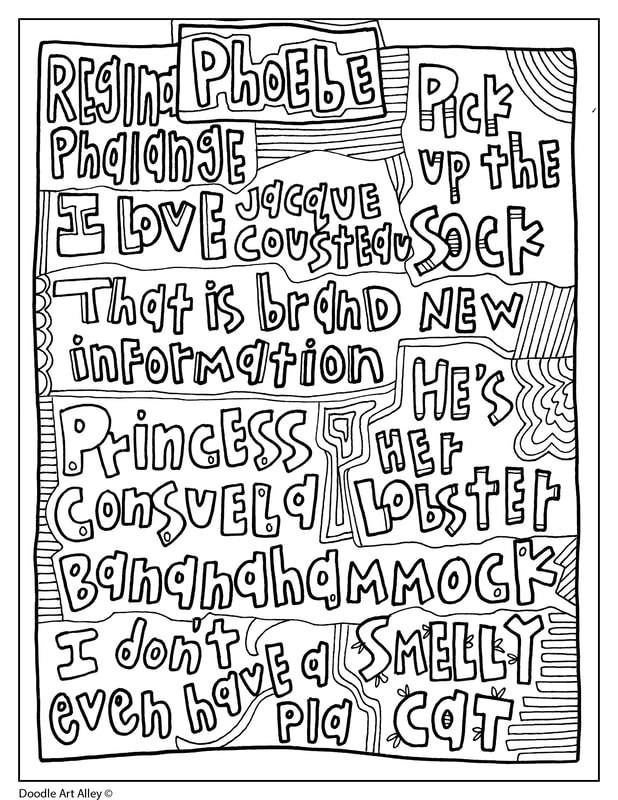 Phoebe
Regina
Phalange
Pick
up the
Sock
I Love
Jacque
Cousteau
That is brand new
information
Princess
Consuela
Bananahammock
He's
Her
Lobster
I don't
even have a
pla
Smelly
Cat
Doodle Art Alley ©